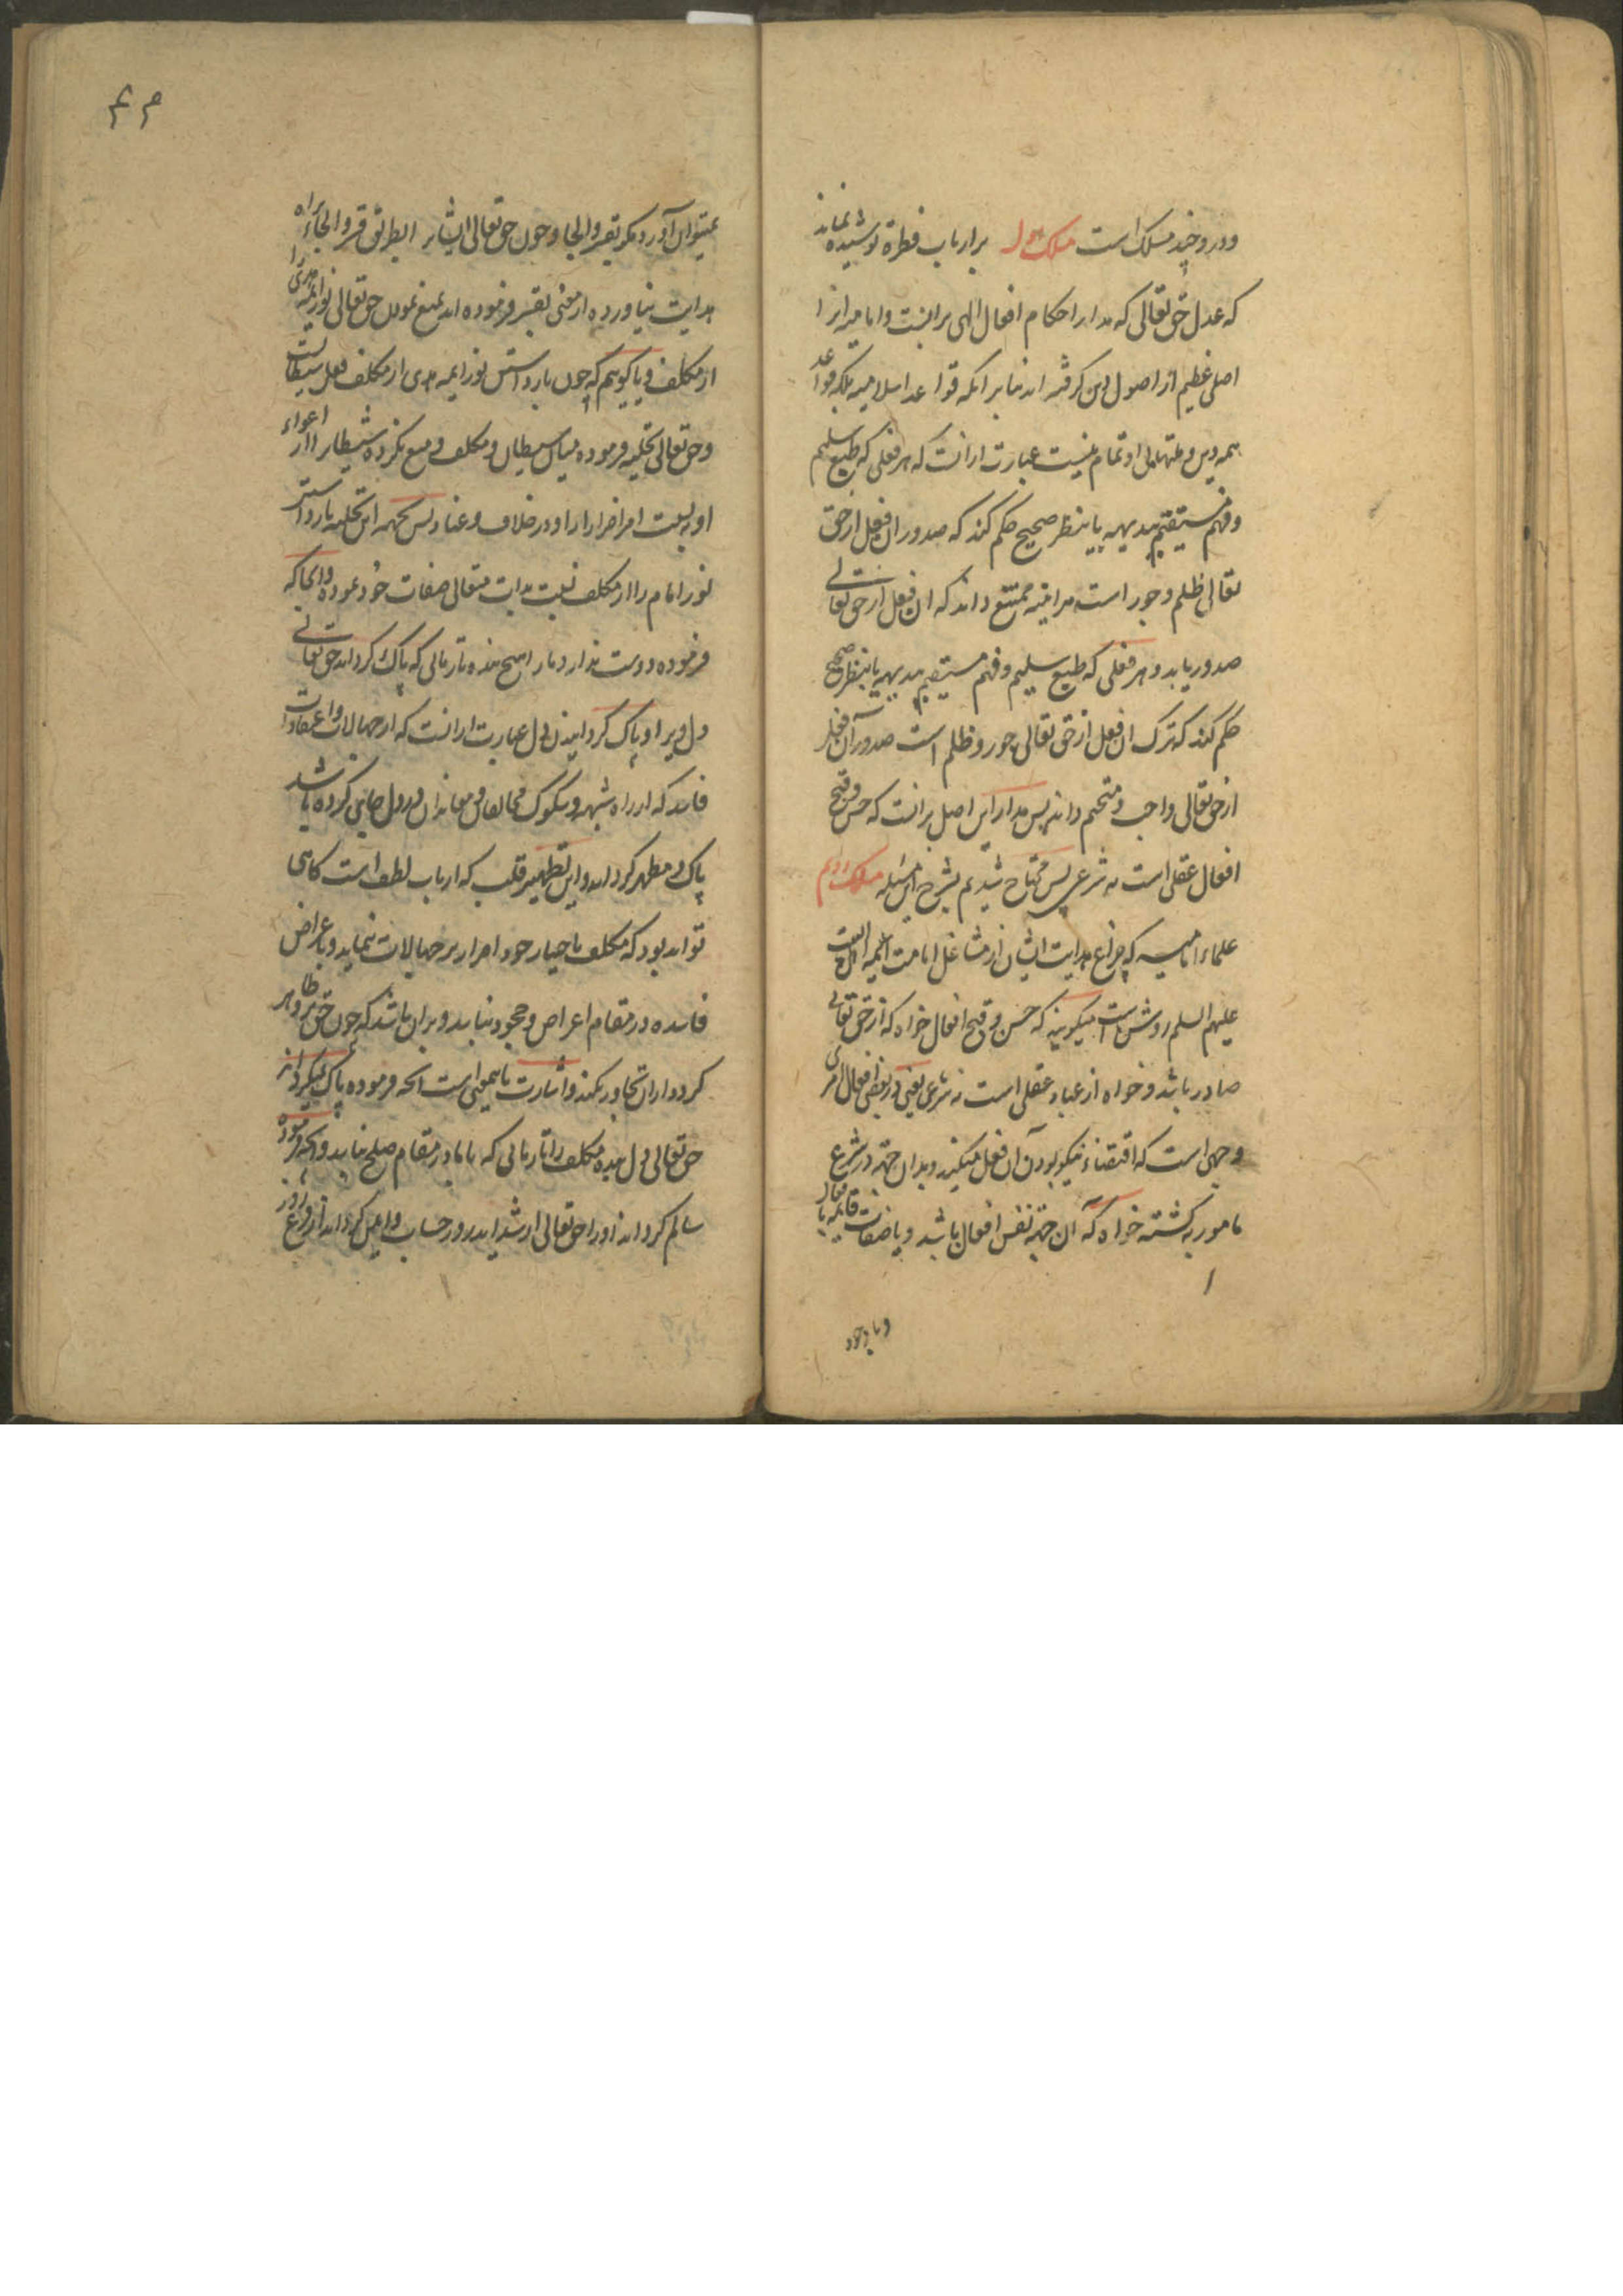 ودرو چند مسلک است مسلک اول بر ارباب فطرة پوشیده نماند
که عدل حق تعالی که مدار احکام افعال الهی برانست و امامیه انرا
اصلی عظیم از اصول دین گرفته اند بنابر انکه قواعد اسلامیه بلکه قواعد
همه دین و ملتها بی او تمام نیست عبارت ازانست که هر فعلی که طبع سلیم
و فهم مستقیم ببدیهه یا بنظر صحیح حکم کند که صدور ان فعل از حق
تعالی ظلم و جور است هراینه ممتنع داند که ان فعل از حق تعالی
صدور یابد و هر فعلی که طبع سلیم و فهم مستقیم ببدیهه یا بنظر صحیح
حکم کند که ترک ان فعل از حق تعالی جور و ظلم است صدور آن فعل
از حق تعالی واجب و متحتم داند پس مدار این اصل برانست که حسن و قبح
افعال عقلی است نه شرعی پس محتاج شدیم بشرح این مسئله مسلک دویم
علماء امامیه که چراغ هدایت ایشان از مشاعل امامت ائمه اهل البیت
علیهم السلم روشن است میگویند که حسن و قبح افعال خواه که از حق تعالی
صادر باشد و خواه از عباد عقلی است نه شرعی یعنی در بعضی افعال امری
و جهی است که اقتضاء نیکو بودن آن فعل میکند و بدان جهة در شرع
مامور به گشته خواه که آن جهة نفس افعال باشد و یا صفات قایمه بافعال
و با وجود
نمیتوان آورد مگر بقسر و الجا و چون حق تعالی ایشانرا بطریق قسر و الجاء براه
هدایت نیاورده ازمعنی تعبیر فرموده اند بمنع نمودن حق تعالی نور ائمه هدی را
از مکلف و یا گوئیم که چون بازداشتن نور ائمه هدی از مکلف فعل شیطانست
و حق تعالی تخلیه فرموده میان شیطان و مکلف و منع نکرده شیطان را از اغواء
او بسبب اصرار او در خلاف و عناد پس بجهة این تخلیه بازداشتن
نور امام را از مکلف نسبت بذات متعالی صفات خود نموده و انجا که
فرموده دوست ندارد ما را هیچ بنده تا زمانی که پاک گرداند حق تعالی
دل ویرا و پاک گردانیدن دل عبارت ازانست که از جهالات و اعتقادات
فاسد که از راه شبهه و شکوک مخالفان و معاندان در دل جای کرده باشد
پاک و مطهر گرداند و این تطهیر قلب که از باب لطف است گاهی
تواند بود که مکلف باختیار خود اصرار بر جهالات ننماید و باعراض
فاسده در مقام اعراض و جحود نیاید و بران باشد که چون حق برو ظاهر
گردد ازان تجاوز نکند و اشارت باینمعنی است انچه فرموده پاک نمیگرداند
حق تعالی دل بنده مکلف را تا زمانی که با ما در مقام صلح نیاید و انکه فرموده
سالم گرداند او را حق تعالی از شداید روز حساب و ایمن گرداند از فزع روز